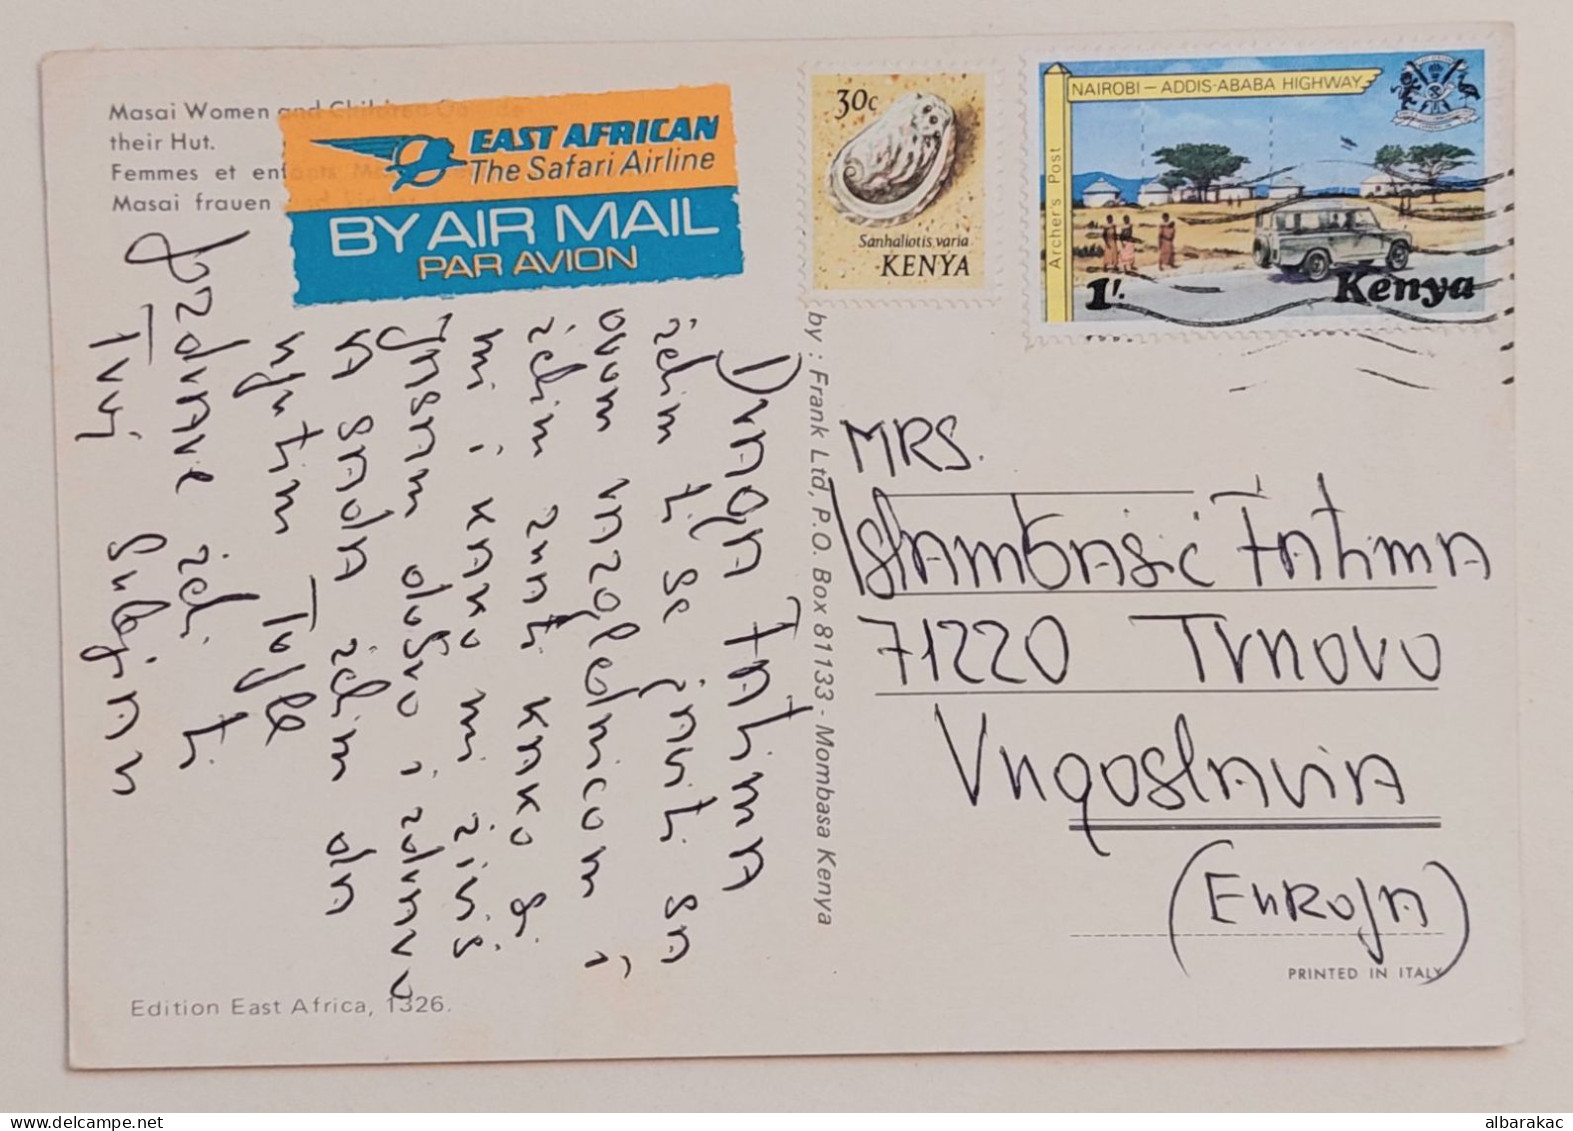 Masai Women and Children Outside
their Hut.
Femmes et enfants
Masai frauen
EAST AFRICAN
The Safari Airline
BY AIR MAIL
PAR AVION
30c
Sanhaliotis varia
KENYA
NAIROBI – ADDIS-ABABA HIGHWAY
Archer's Post
1/-
Kenya
Draga Fatima
želim ti se javiti sa
ovom razglednicom i
želim znati kako si
mi i kako mi živiš
Ja sam dobro i zdravo
a sada želim da
Tople
pozdrave želi ti
Tvoj
by : Frank Ltd, P.O. Box 81133 - Mombasa Kenya
MRS.
Islambašić Fatima
71220 Trnovo
Yugoslavia
(Euroja)
PRINTED IN ITALY
Edition East Africa, 1326.
albarakac